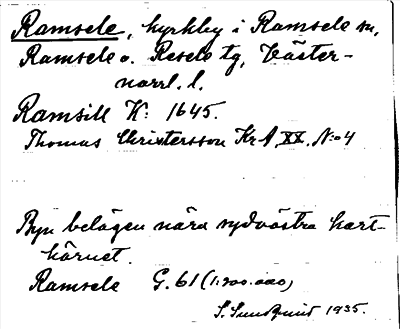 Ramsele, kyrkby i Ramsele sn,
Ramsele o. Resele tg, Väster-
norrl. l.
Ramsill K: 1645.
Thomas Christersson Kr A XX. N:o 4
Byn belägen nära sydvästra kart-
hörnet.
Ramsele G. 61 (1:200.000)
S. Sundquist 1935.